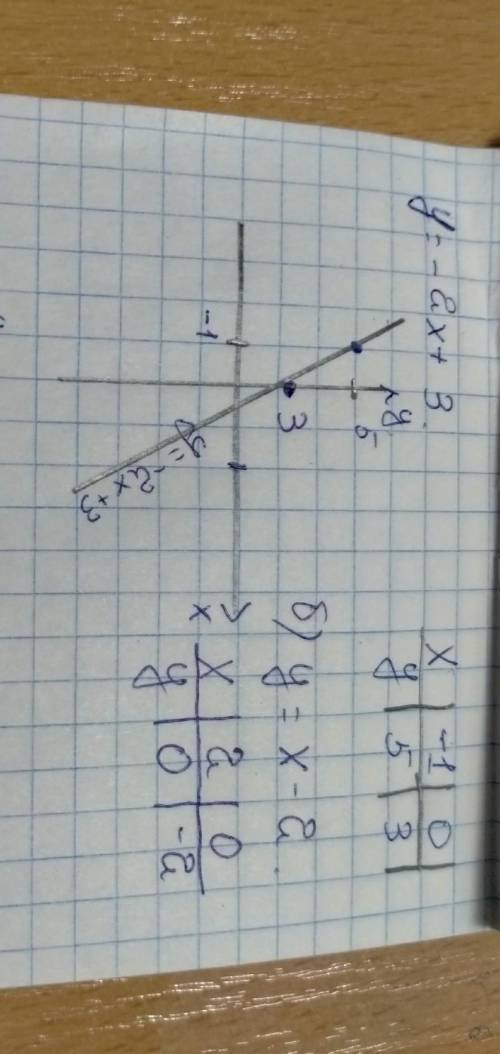 y = -2x + 3
x | -1 | 0
y | 5 | 3
y
5
3
-1
x
y = -2x+3
б) y = x - 2
x | 2 | 0
y | 0 | -2